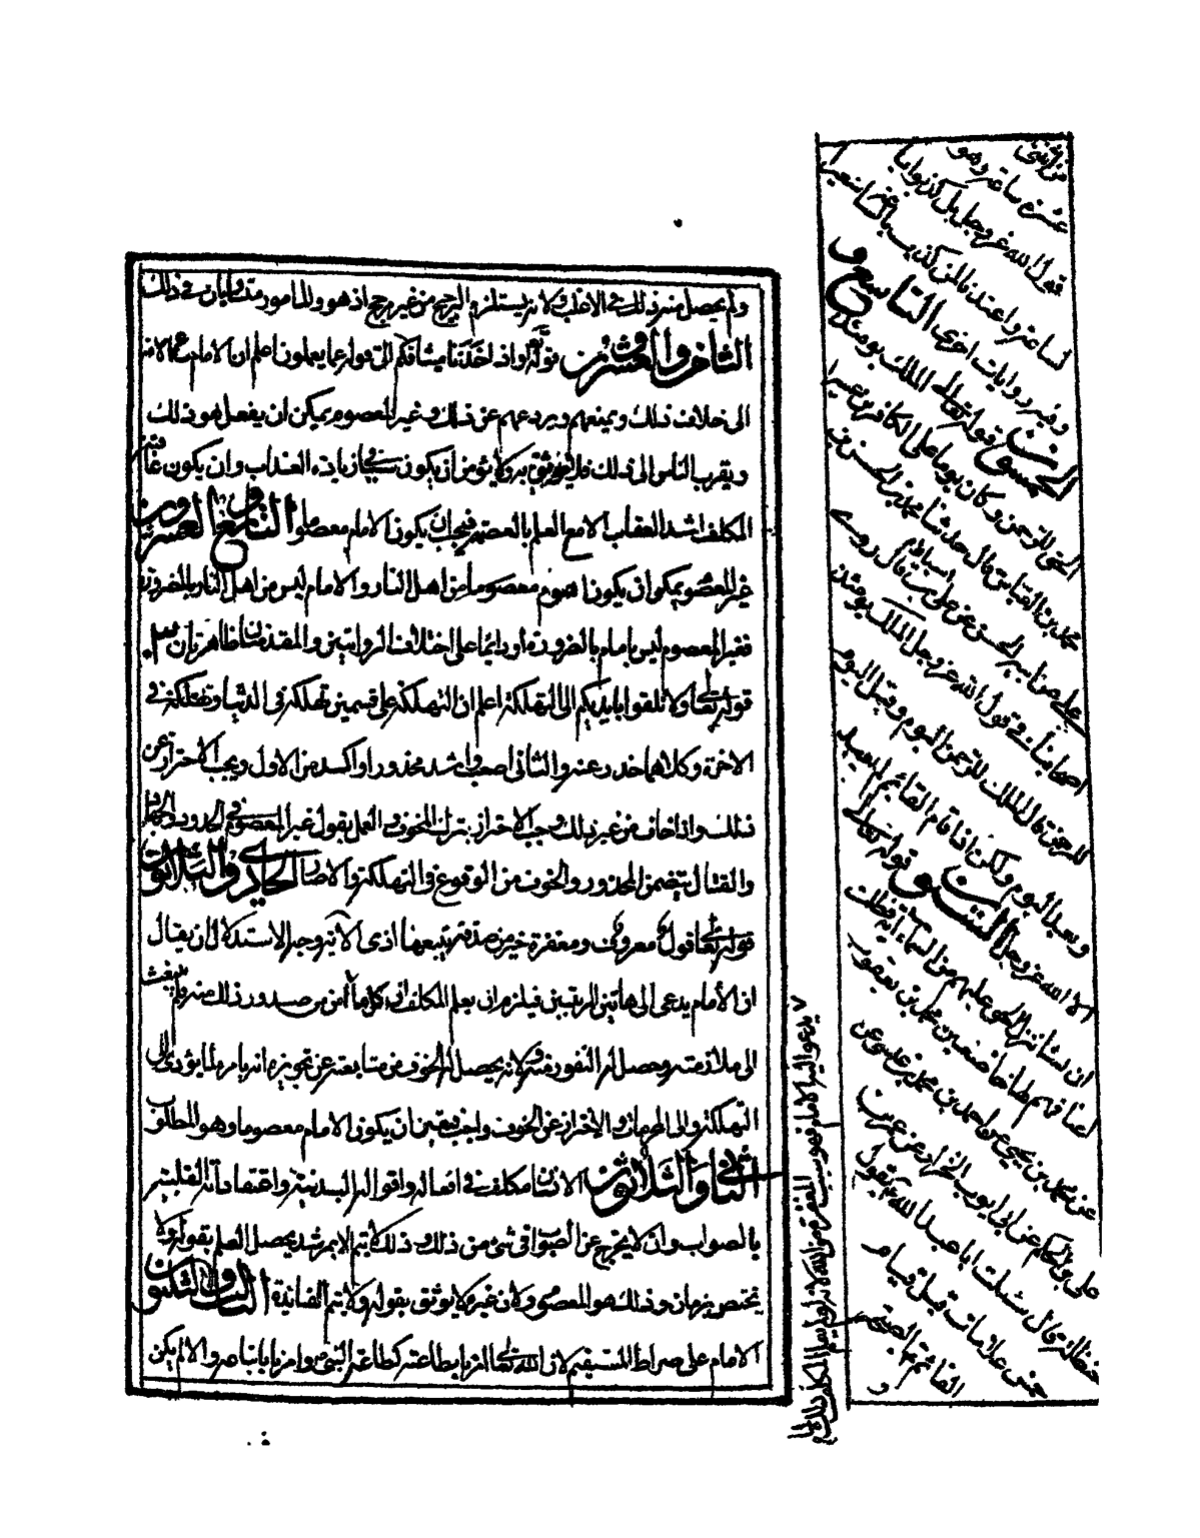 ولم يحصل منه ذلك في الاغلب ولانه يستلزم الترجيح من غير مرجح اذ هو والمأمور متساويان في ذلك
الثامن والعشرون قوله تعالى واذ اخذنا ميثاقكم الى قوله عما يعملون اعلم ان الامام
الى خلاف ذلك ويمنعهم ويردعهم عن ذلك وغير المعصوم يمكن ان يفعل هو ذلك
ويقرب الناس الى ذلك فلا يوثق به ولا يؤمن ان يكون سببا في زيادة العذاب وان يكون
المكلف اشد العقاب الا مع العلم بالعصمة فيجب ان يكون الامام معصوما التاسع والعشرون
غير المعصوم يمكن ان يكون اهوم معصوما من اهل النار والامام ليس من اهل النار بالضرورة
فغير المعصوم ليس بامام بالضرورة او دائما على اختلاف الروايتين والمقدمتان ظاهرتان
قوله تعالى ولا تلقوا بايديكم الى التهلكة اعلم ان التهلكة على قسمين تهلكة في الدنيا وتهلكة في
الاخرة وكلاهما حذر عنه والثاني اصعب واشد محذورا واكد من الاول ويجب الاحتراز عن
ذلك واذا خاف من غير ذلك وجب الاحتراز بترك المخوف والعمل بقول غير المعصوم في الحدود والجهاد
والقتال يتضمن المحذور والخوف من الوقوع في التهلكة والاضا الحادي والثلاثون
قوله تعالى قول معروف ومغفرة خير من صدقة يتبعها اذى الآية وجه الاستدلال ان يقال
ان الامام يدعى الى هاتين المرتبتين فيلزم ان يعلم المكلف ان كلاما أمن من صدور ذلك منه
الى ملازمته وحصل له النفور منه ولانه يحصل له الخوف من متابعته عن تجويزه انه يامره بما يؤدي الى
التهلكة والى الحرمان والاحتراز عن الخوف واجب فيتعين ان يكون الامام معصوما وهو المطلوب
الثاني والثلاثون الانسان مكلف في افعاله واقواله البدنية واعتقاداته القلبية
بالصواب وان لا يخرج عن الصواب في شئ من ذلك وذلك لا يتم الا بمرشد يحصل العلم بقوله ولا
يختص بزمان وذلك هو المعصوم لان غيره لا يوثق بقوله ولا يتم الفائدة الثالث والثلثون
الامام على صراط المستقيم لان الله تعالى امر بطاعته كطاعة النبي وامرنا باتباعه والا لم يكن
يدعو اليها الامام فهو سبب المغفرة من الله لانه
من اثنى
عشرة ساعة وهو
قول الله عز وجل بل كذبوا با
لساعة واعتدنا لمن كذب بالساعة سعيرا
وفيه روايات اخرى التاسع و
الخمسون قوله تعالى الملك يومئذ
الحق للرحمن وكان يوما على الكافرين عسيرا
محمد بن العباس قال حدثنا محمد بن الحسن بن
على عن ابيه الحسن عن على بن اسباط قال روى
اصحابنا في قول الله عز وجل الملك يومئذ
للرحمن قال الملك للرحمن اليوم وقبل اليوم
وبعد اليوم ولكن اذا قام القائم لم يعبد
الا الله عز وجل الستون قوله تعالى
ان نشأ ننزل عليهم من السماء آية فظلت
اعناقهم لها خاضعين محمد بن يعقوب
عن محمد بن يحيى عن احمد بن محمد بن عيسى عن
على بن الحكم عن ابى ايوب الخزاز عن عمر بن
حنظلة قال سمعت ابا عبد الله يقول
خمس علامات قبل قيام
القائم الصيحة
و